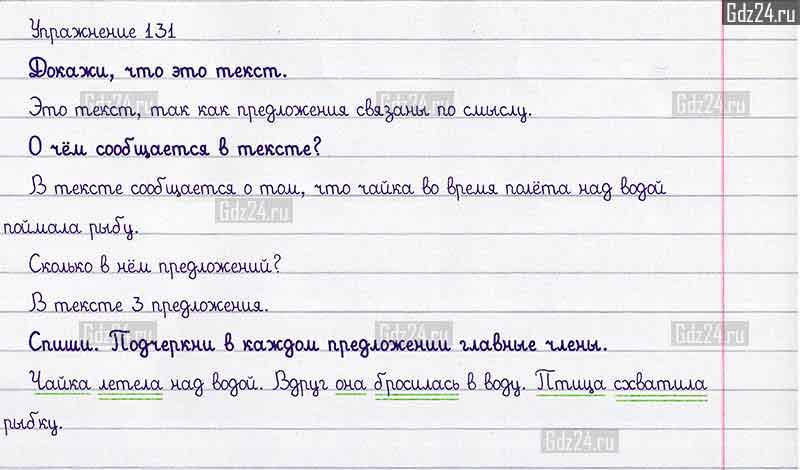 Gdz24.ru
Упражнение 131
Докажи, что это текст.
Gdz24.ru Gdz24.ru Gdz24.ru
Это текст, так как предложения связаны по смыслу.
О чём сообщается в тексте?
В тексте сообщается о том, что чайка во время полёта над водой
Gdz24.ru
поймала рыбу.
Сколько в нём предложений?
В тексте 3 предложения.
Gdz24.ru Gdz24.ru Gdz24.ru
Спиши. Подчеркни в каждом предложении главные члены.
Чайка летела над водой. Вдруг она бросилась в воду. Птица схватила
рыбку.
Gdz24.ru